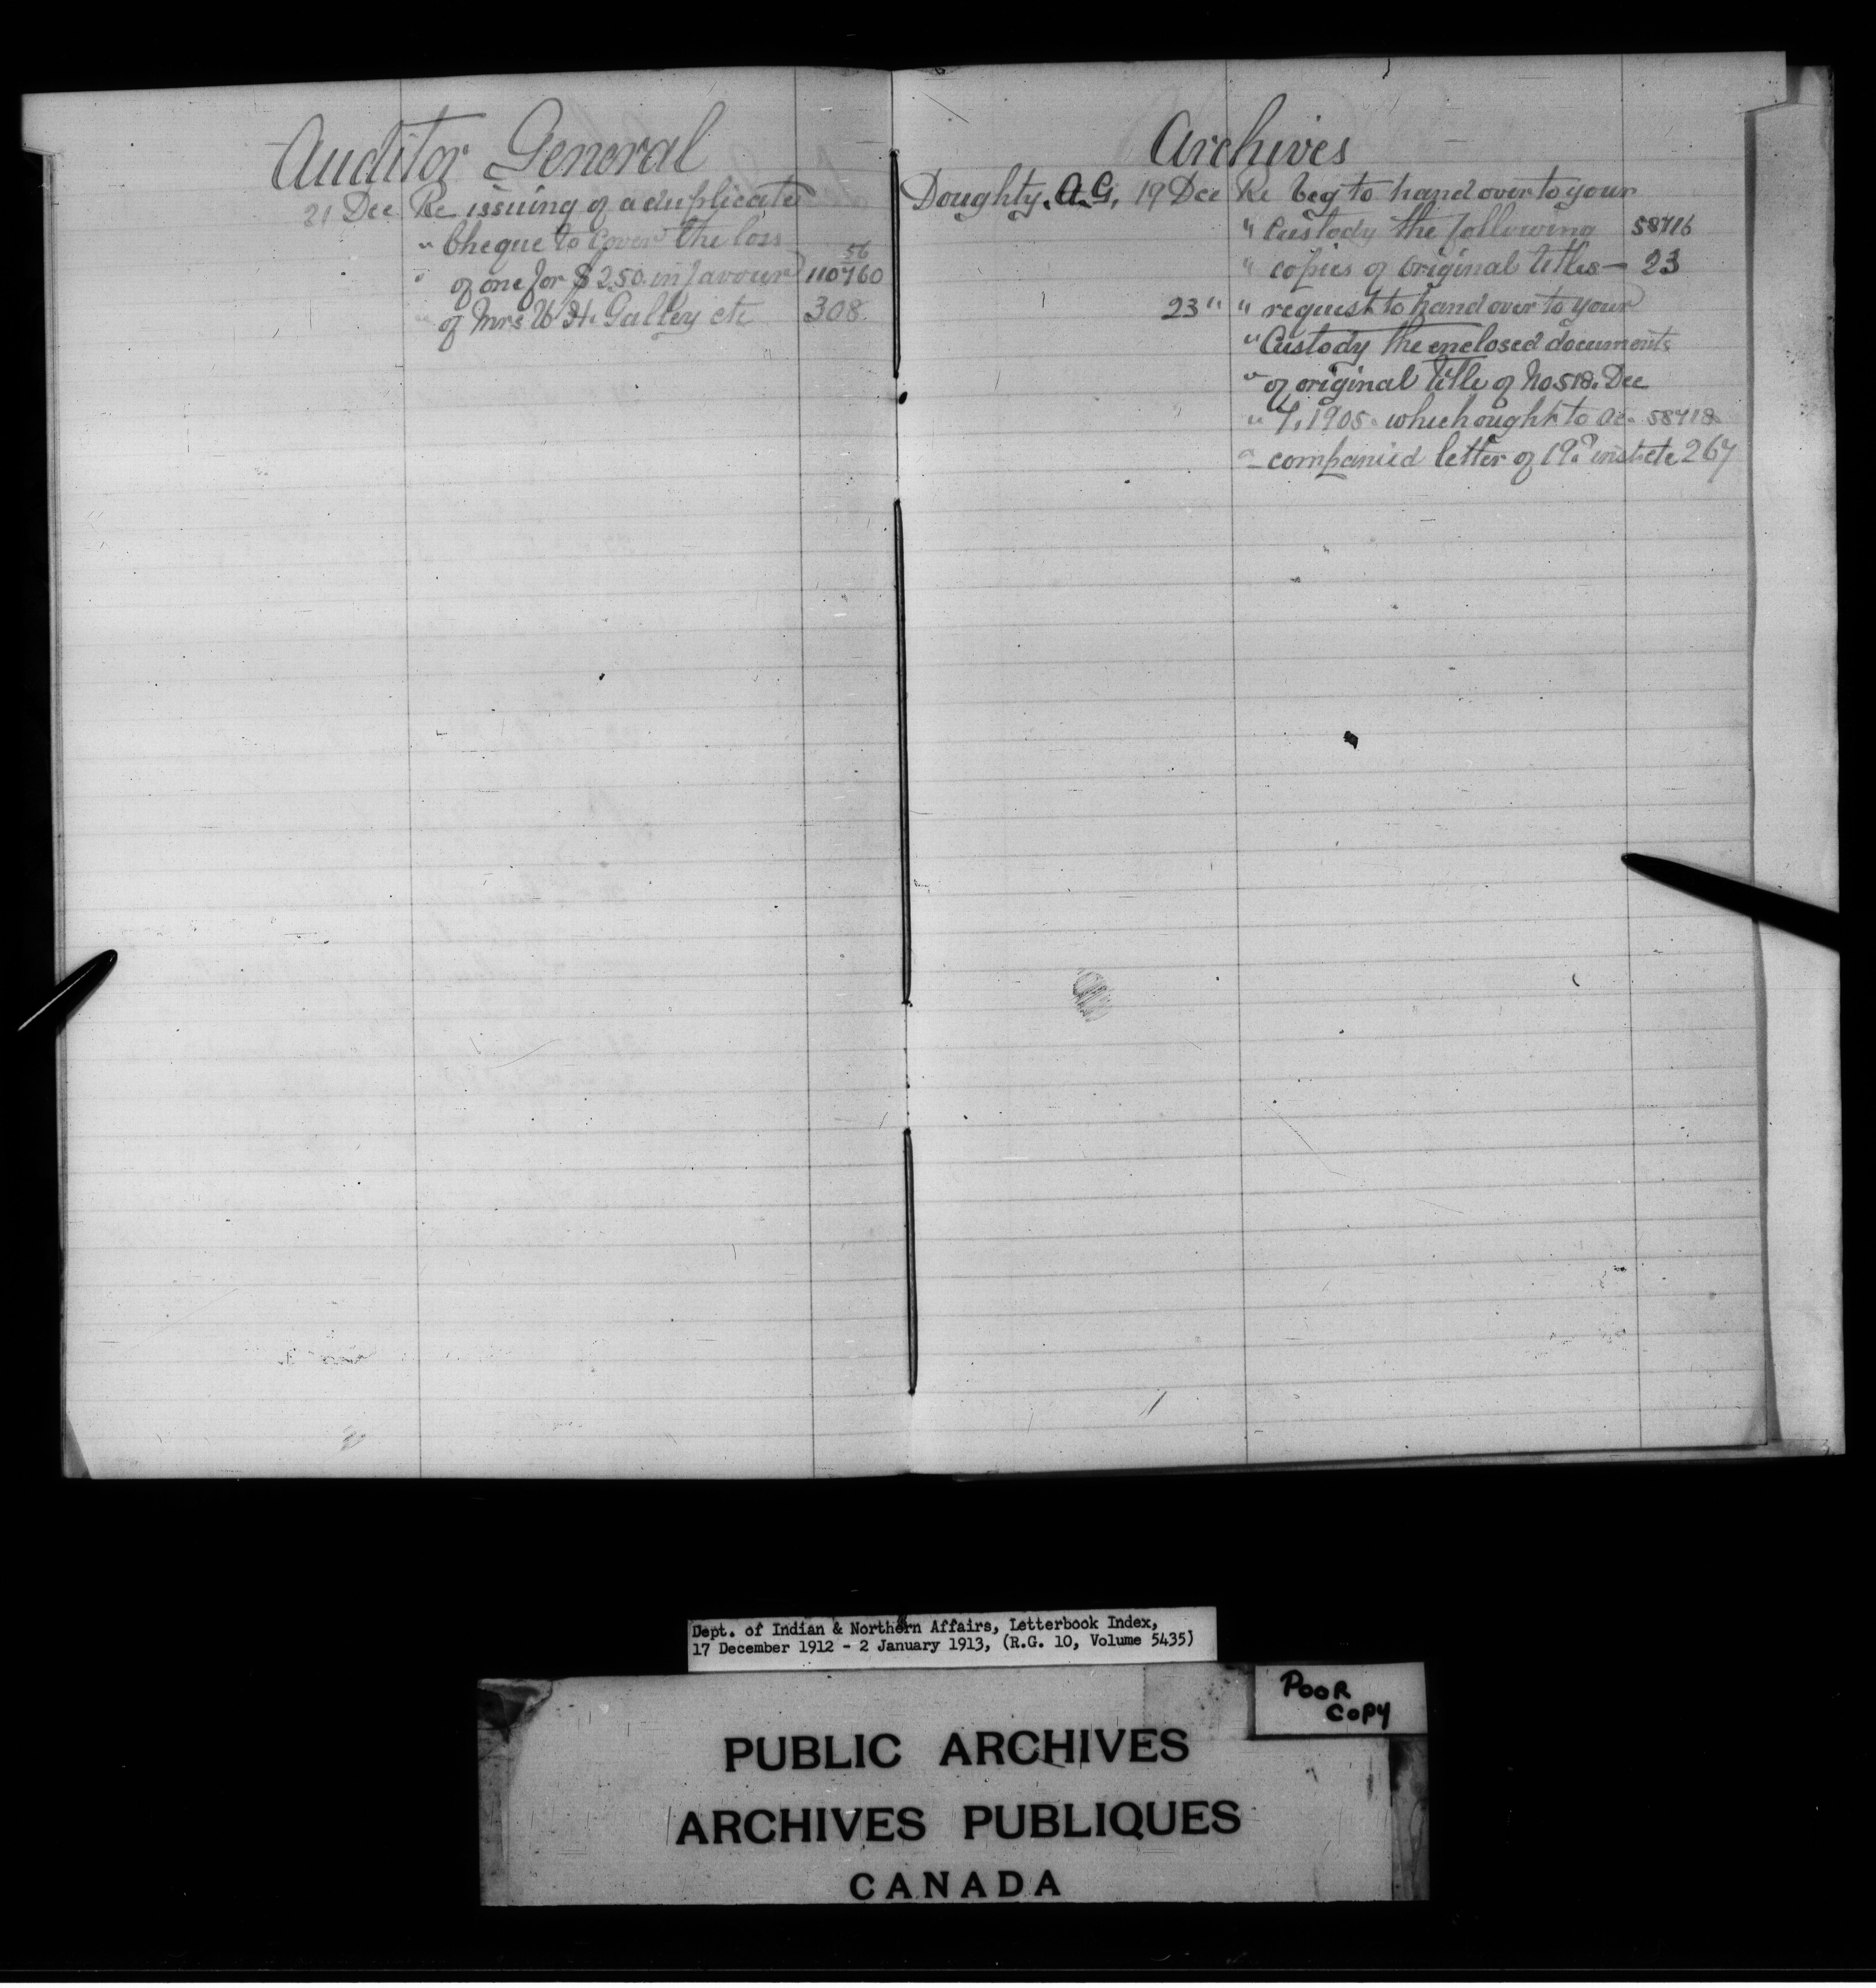 Auditor General
21 Dec Re issuing of a duplicate
" Cheque to cover the loss 56
" of one for $2.50. in favour 110760
" of Mrs W. H. Galley etc 308.
Archives
Doughty. A.G. 19 Dec Re beg to hand over to your
" Custody the following 58716
" copies of original titles — 23
23 " " request to hand over to your
" Custody the enclosed documents
" of original title of No 518. Dec
" 7, 1905. which ought to ac- 58718
" companied letter of 19th inst etc 267
Dept. of Indian & Northern Affairs, Letterbook Index,
17 December 1912 - 2 January 1913, (R.G. 10, Volume 5435)
POOR
COPY
PUBLIC ARCHIVES
ARCHIVES PUBLIQUES
CANADA